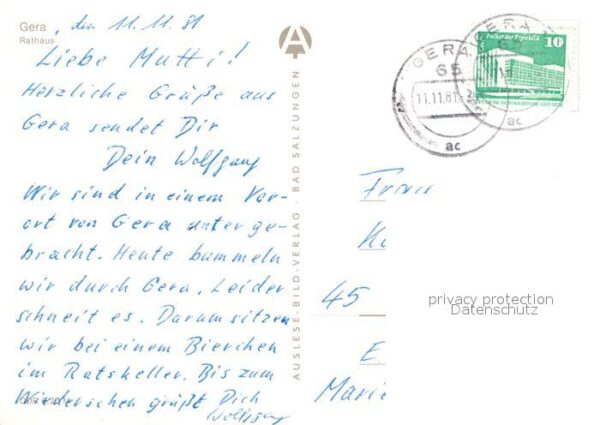 Gera, den 11.11.81
Rathaus
Liebe Mutti!
Herzliche Grüße aus
Gera sendet Dir
Dein Wolfgang
Wir sind in einem Vor-
ort von Gera unterge-
bracht. Heute bummeln
wir durch Gera. Leider
schneit es. Darum sitzen
wir bei einem Bierchen
im Ratskeller. Bis zum
Wiedersehen grüßt Dich
Wolfgang
AUSLESE-BILD-VERLAG · BAD SALZUNGEN
GERA
65
11.11.81
ac
GERA
65
ac
Palast der Republik
10
DEUTSCHE DEMOKRATISCHE REPUBLIK
Frau
45
E
Marie
privacy protection
Datenschutz